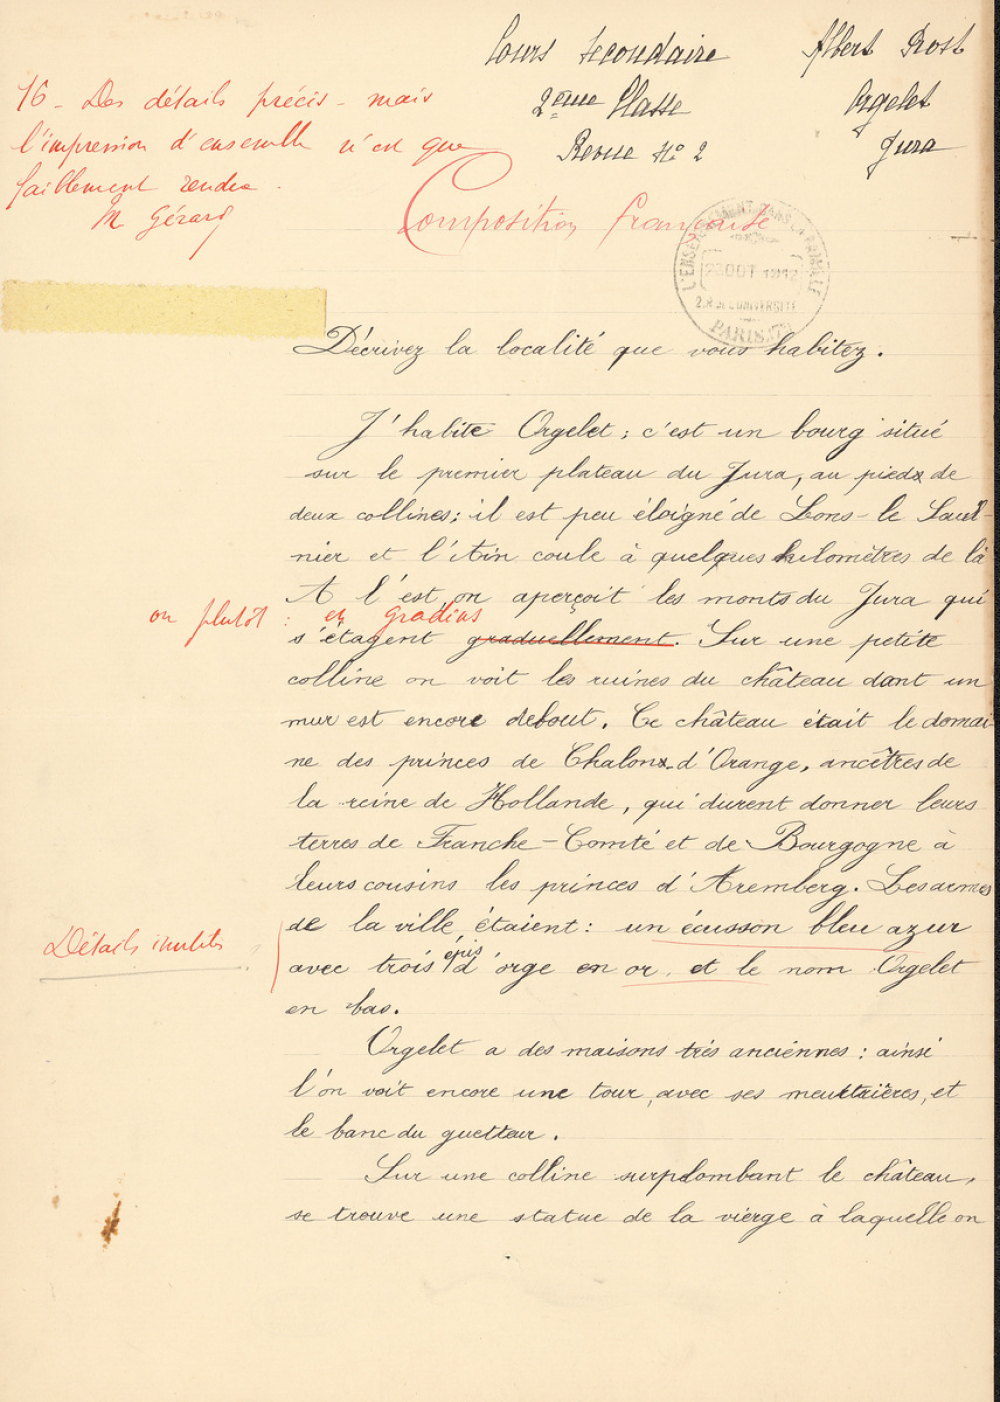 Cours Secondaire
2ème Classe
Revue Nº 2
Albert Prost
Orgelet
Jura
16 - Des détails précis - mais
l'impression d'ensemble n'est que
faiblement rendue.
M. Gérard
Composition française
L'ENSEIGNEMENT DANS LA FAMILLE
23 OCT 1912
2, R. DE L'UNIVERSITÉ
PARIS
Décrivez la localité que vous habitez.
J'habite Orgelet ; c'est un bourg situé
sur le premier plateau du Jura, au pied de
deux collines ; il est peu éloigné de Lons-le Saul-
nier et l'Ain coule à quelques kilomètres de là
A l'est, on aperçoit les monts du Jura qui
ou plutôt : en gradins
s'étagent graduellement. Sur une petite
colline on voit les ruines du château dont un
mur est encore debout. Ce château était le domai-
ne des princes de Chalon d'Orange, ancêtres de
la reine de Hollande, qui durent donner leurs
terres de Franche-Comté et de Bourgogne à
leurs cousins les princes d'Aremberg. Les armes
de la ville étaient : un écusson bleu azur
Détails inutiles
avec trois épis d'orge en or, et le nom Orgelet
en bas.
Orgelet a des maisons très anciennes : ainsi
l'on voit encore une tour, avec ses meurtrières, et
le banc du guetteur.
Sur une colline surplombant le château,
se trouve une statue de la vierge à laquelle on